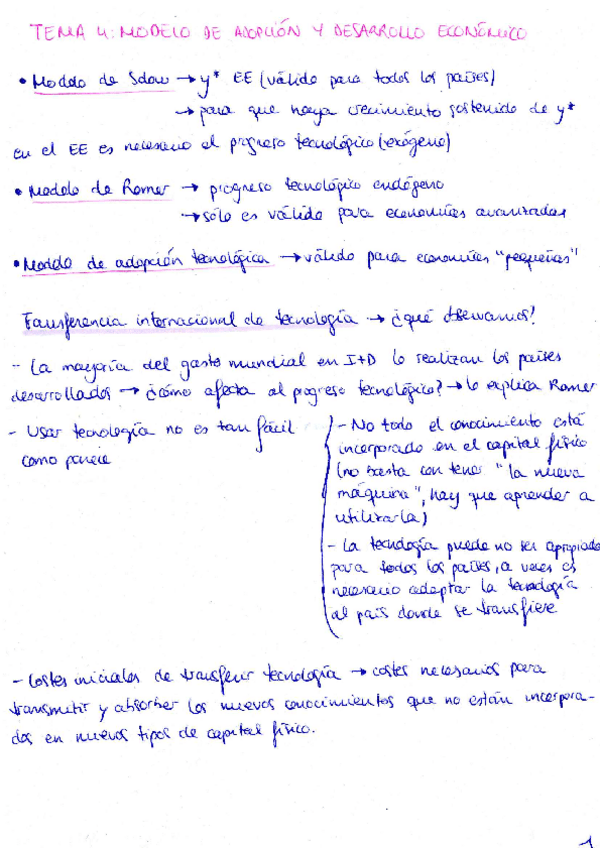 TEMA 4: MODELO DE ADOPCIÓN Y DESARROLLO ECONÓMICO
• Modelo de Solow → y* EE (válido para todos los países)
→ para que haya crecimiento sostenido de y*
en el EE es necesario el progreso tecnológico (exógeno)
• Modelo de Romer → progreso tecnológico endógeno
→ sólo es válido para economías avanzadas
• Modelo de adopción tecnológica → válido para economías "pequeñas"
Transferencia internacional de tecnología → ¿qué observamos?
- La mayoría del gasto mundial en I+D lo realizan los países
desarrollados → ¿cómo afecta al progreso tecnológico? → lo explica Romer
- Usar tecnología no es tan fácil
como parece
- No todo el conocimiento está
incorporado en el capital físico
(no basta con tener "la nueva
máquina", hay que aprender a
utilizarla)
- La tecnología puede no ser apropiada
para todos los países, a veces es
necesario adaptar la tecnología
al país donde se transfiere
- Costes iniciales de transferir tecnología → costes necesarios para
transmitir y absorber los nuevos conocimientos que no están incorpora-
dos en nuevos tipos de capital físico.
1